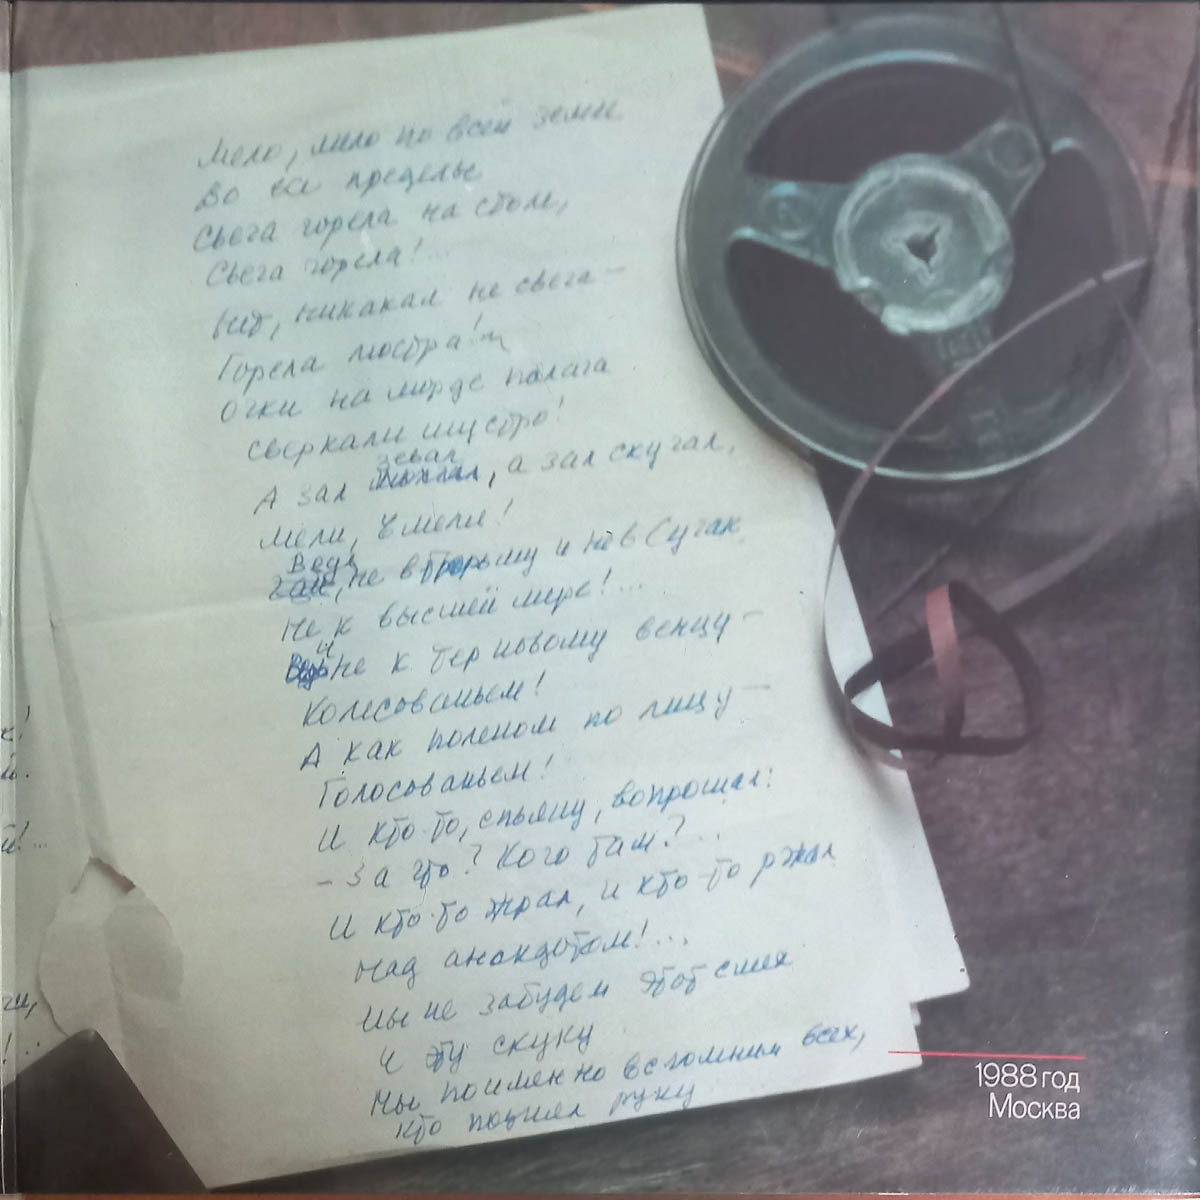 Мело, мело по всей земле
Во все пределы
Свеча горела на столе,
Свеча горела!..
Нет, никакая не свеча –
Горела люстра!
Очки на морде палача
сверкали шустро!
зевал
А зал, а зал скучал,
Мели, Емеля!
Ведь
не в тюрьму и не в Сучан,
Не к высшей мере!...
и
не к терновому венцу –
Колесованьем!
А как поленом по лицу –
Голосованьем!
И кто-то, спьяну, вопрошал:
– За что? Кого там?..
И кто-то жрал, и кто-то ржал
Над анекдотом!...
Мы не забудем этот смех
и эту скуку
Мы поименно вспомним всех,
кто поднял руку
1988 год
Москва